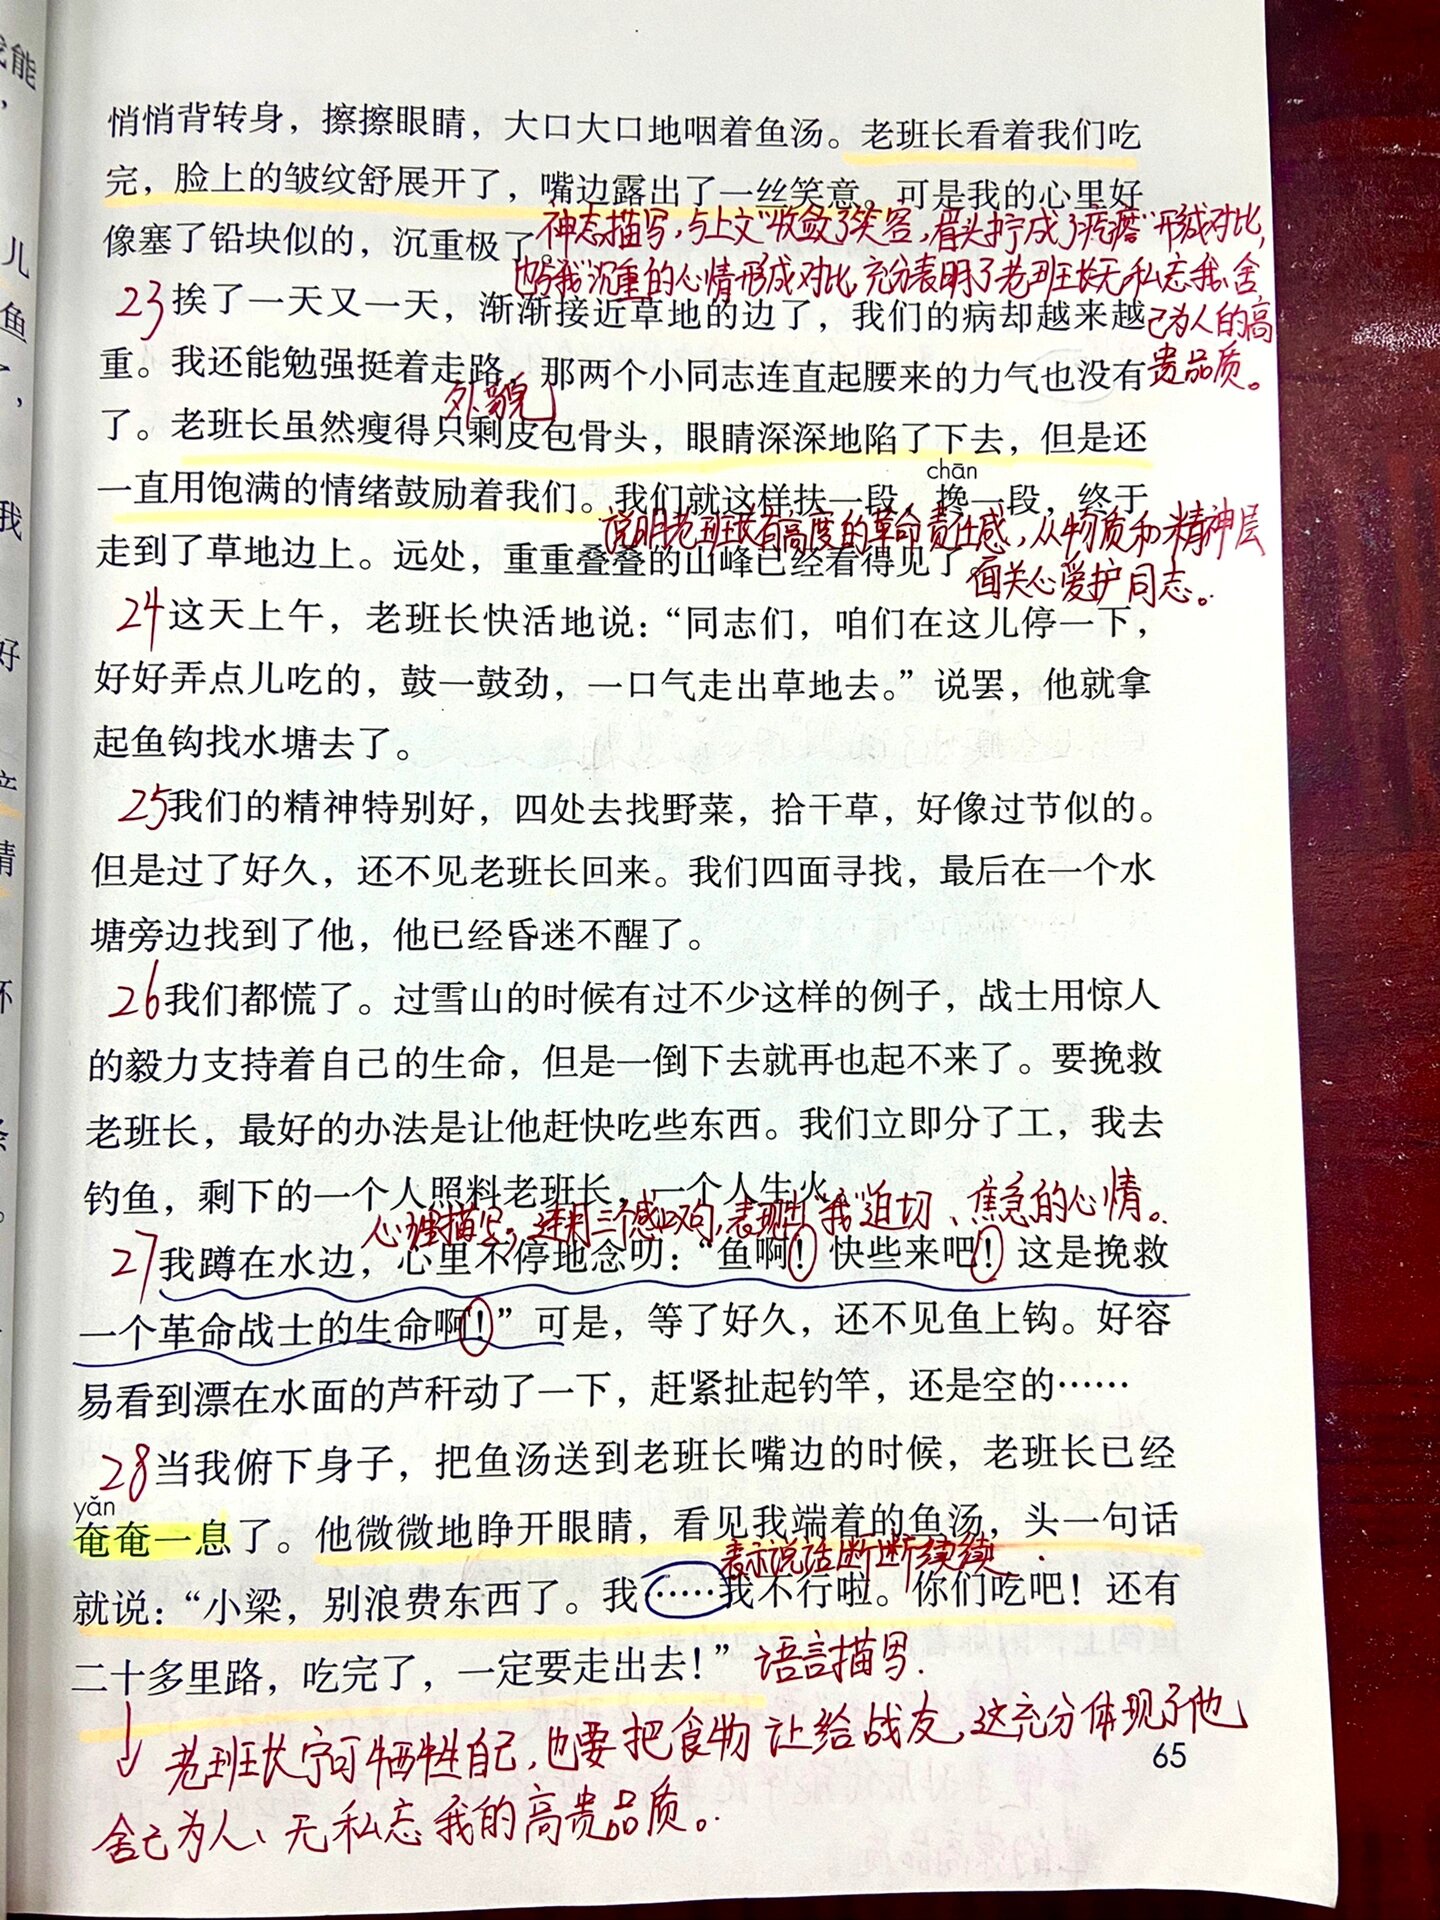 悄悄背转身，擦擦眼睛，大口大口地咽着鱼汤。老班长看着我们吃
完，脸上的皱纹舒展开了，嘴边露出了一丝笑意。可是我的心里好
像塞了铅块似的，沉重极了。
神态描写，与上文“收敛了笑容，眉头拧成了疙瘩”形成对比，
也与“我”沉重的心情形成对比，充分表明了老班长无私忘我、舍
己为人的高
贵品质。
23 挨了一天又一天，渐渐接近草地的边了，我们的病却越来越
重。我还能勉强挺着走路，那两个小同志连直起腰来的力气也没有
外貌
了。老班长虽然瘦得只剩皮包骨头，眼睛深深地陷了下去，但是还
chān
一直用饱满的情绪鼓励着我们。我们就这样扶一段，搀一段，终于
说明老班长有高度的革命责任感，从物质和精神层
面关心爱护同志。
走到了草地边上。远处，重重叠叠的山峰已经看得见了。
24 这天上午，老班长快活地说：“同志们，咱们在这儿停一下，
好好弄点儿吃的，鼓一鼓劲，一口气走出草地去。”说罢，他就拿
起鱼钩找水塘去了。
25 我们的精神特别好，四处去找野菜，拾干草，好像过节似的。
但是过了好久，还不见老班长回来。我们四面寻找，最后在一个水
塘旁边找到了他，他已经昏迷不醒了。
26 我们都慌了。过雪山的时候有过不少这样的例子，战士用惊人
的毅力支持着自己的生命，但是一倒下去就再也起不来了。要挽救
老班长，最好的办法是让他赶快吃些东西。我们立即分了工，我去
钓鱼，剩下的一个人照料老班长，一个人生火。
心理描写，连用三个感叹句，表现出“我”迫切、焦急的心情。
27 我蹲在水边，心里不停地念叨：“鱼啊！快些来吧！这是挽救
一个革命战士的生命啊！”可是，等了好久，还不见鱼上钩。好容
易看到漂在水面的芦秆动了一下，赶紧扯起钓竿，还是空的……
28 当我俯下身子，把鱼汤送到老班长嘴边的时候，老班长已经
yǎn
奄奄一息了。他微微地睁开眼睛，看见我端着的鱼汤，头一句话
表示说话断断续续.
就说：“小梁，别浪费东西了。我……我不行啦。你们吃吧！还有
二十多里路，吃完了，一定要走出去！” 语言描写.
老班长宁可牺牲自己，也要把食物让给战友，这充分体现了他
舍己为人、无私忘我的高贵品质。
65